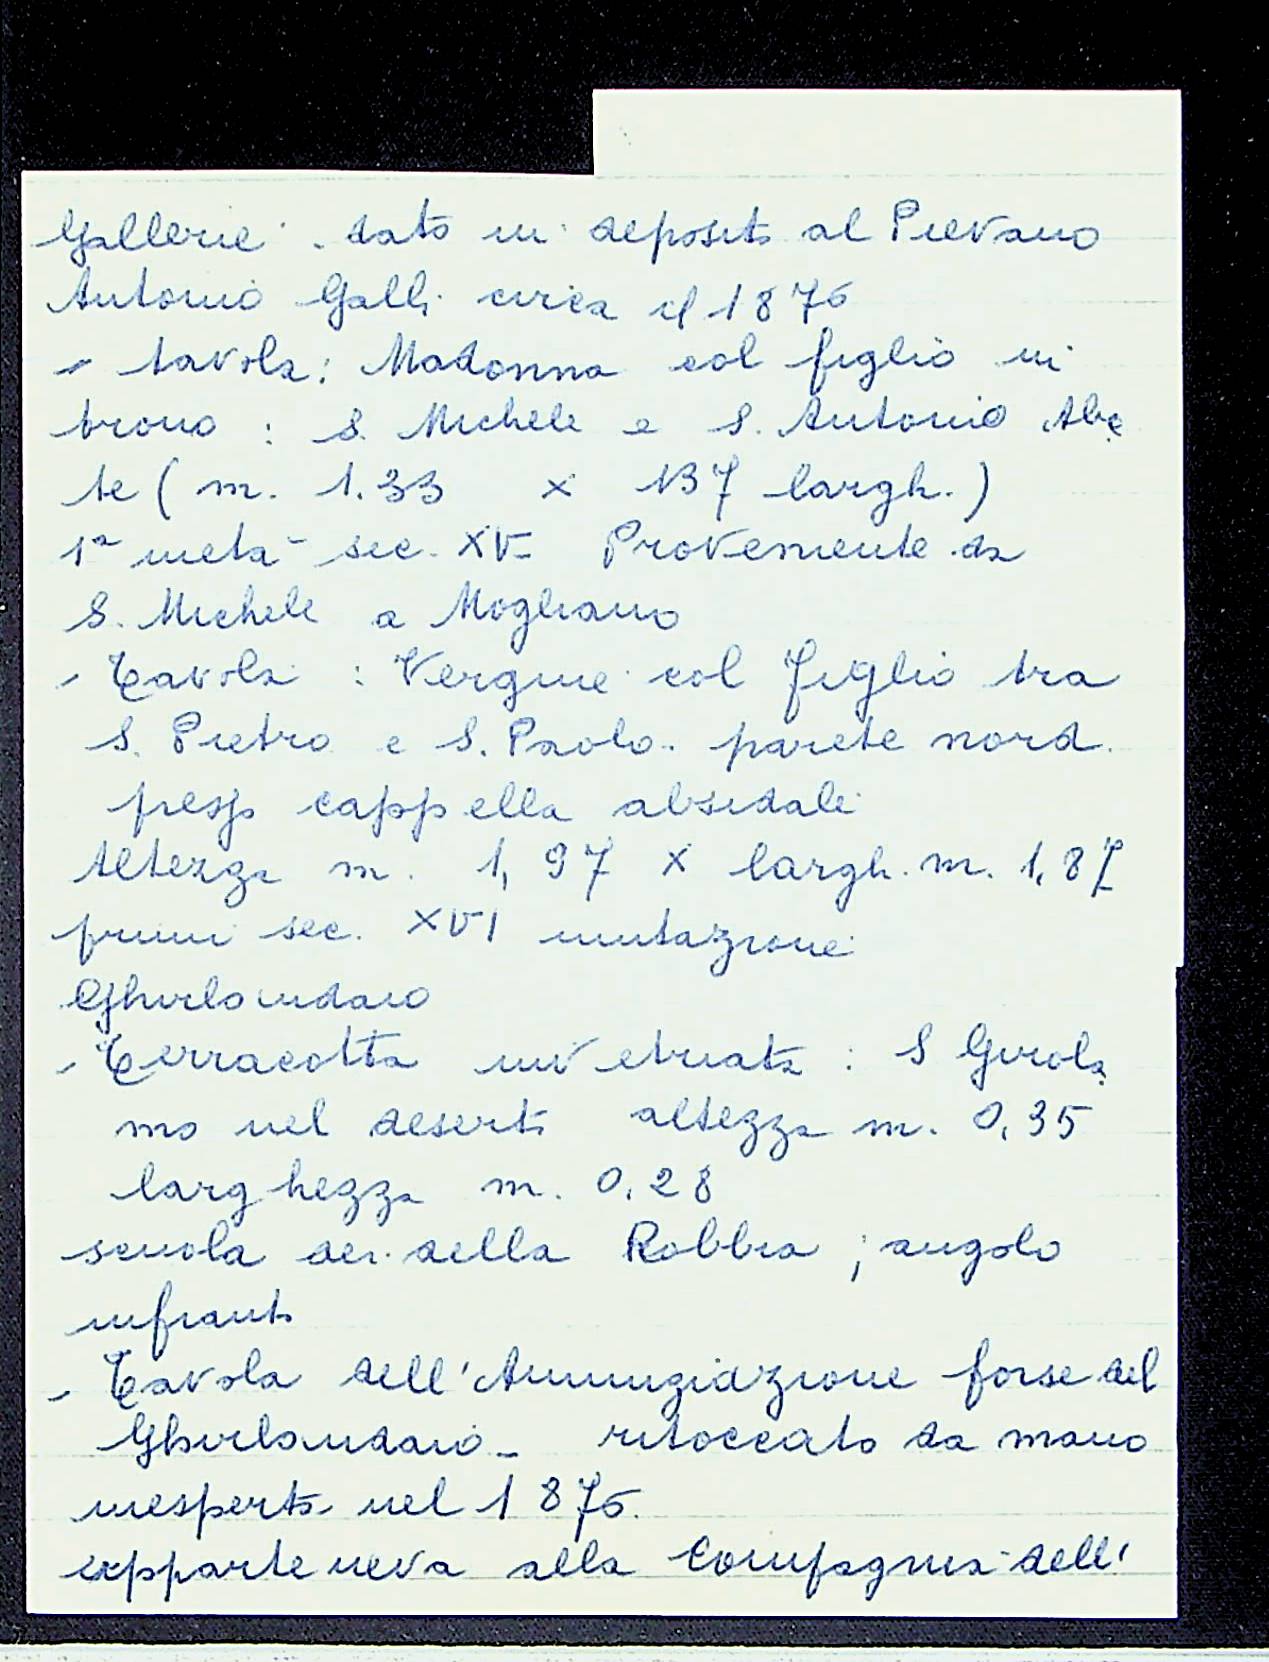 Gallerie - dato in deposito al Pievano
Antonio Galli circa il 1876
- tavola: Madonna col figlio in
trono : S. Michele e S. Antonio Aba
te ( m. 1.33 x 137 largh. )
1ª metà sec. XV Proveniente da
S. Michele a Mogliano
- Tavola : Vergine col figlio tra
S. Pietro e S. Paolo. parete nord
cappella absidale
Altezza m. 1,97 x largh. m. 1,87
primi sec. XVI imitazione
Ghirlandaio
- Terracotta invetriata : S Girola
mo nel deserto altezza m. 0,35
larghezza m. 0.28
scuola dei della Robbia ; angolo
infranto
- Tavola dell'Annunziazione forse del
Ghirlandaio - ritoccato da mano
inesperta nel 1876.
apparteneva alla Compagnia dell'